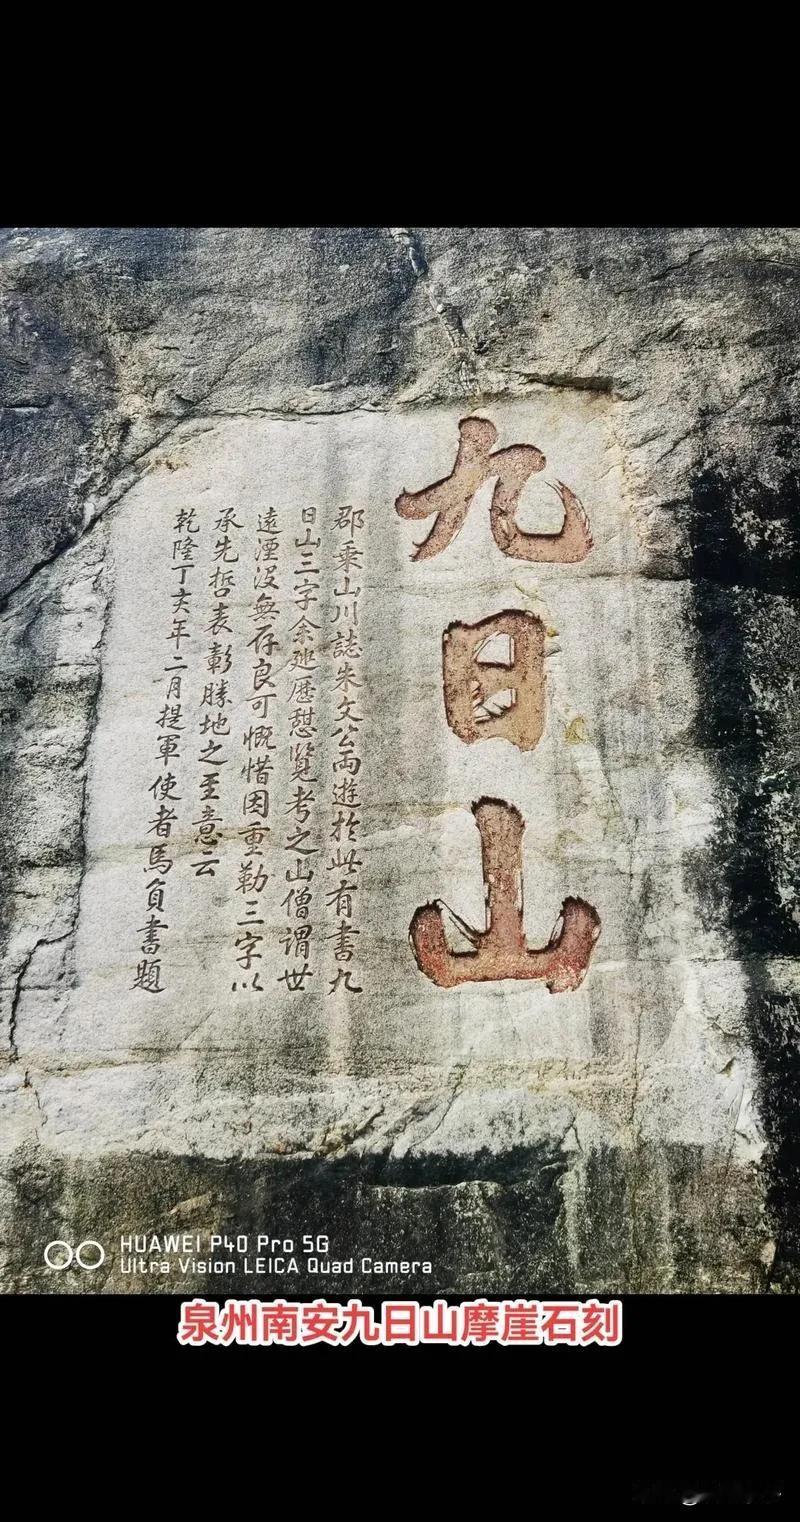 九日山
郡乘山川誌朱文公兩遊於此有書九
日山三字余遊歷憇覽考之山僧謂世
遠湮沒無存良可慨惜因重勒三字以
承先哲表彰勝地之至意云
乾隆丁亥年二月提軍使者馬負書題
HUAWEI P40 Pro 5G
Ultra Vision LEICA Quad Camera
泉州南安九日山摩崖石刻